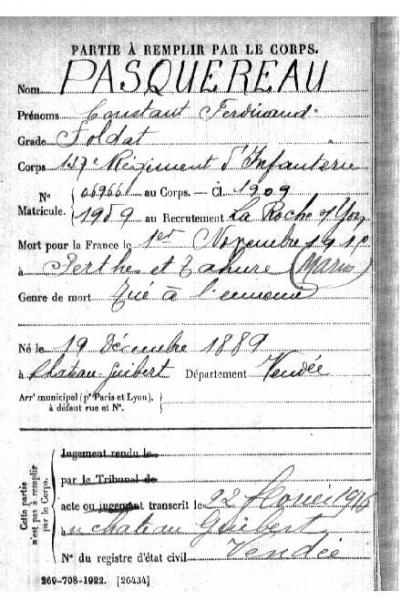 PARTIE À REMPLIR PAR LE CORPS.
Nom PASQUEREAU
Prénoms Constant Ferdinand
Grade Soldat
Corps 137e Régiment d'Infanterie
N° Matricule. { 06966 au Corps. — Cl. 1909
1989 au Recrutement La Roche s/ Yon
Mort pour la France le 1er Novembre 1915
à Perthes et Tahure (Marne)
Genre de mort Tué à l'ennemi
Né le 19 Décembre 1889
à Chateau-Guibert Département Vendée
Arr' municipal (p' Paris et Lyon),
à défaut rue et N°.
Cette partie n'est pas à remplir par le Corps.
Jugement rendu le
par le Tribunal de
acte ou jugement transcrit le 22 février 1916
à Chateau Guibert
Vendée
N° du registre d'état civil
269-708-1922. [26434]